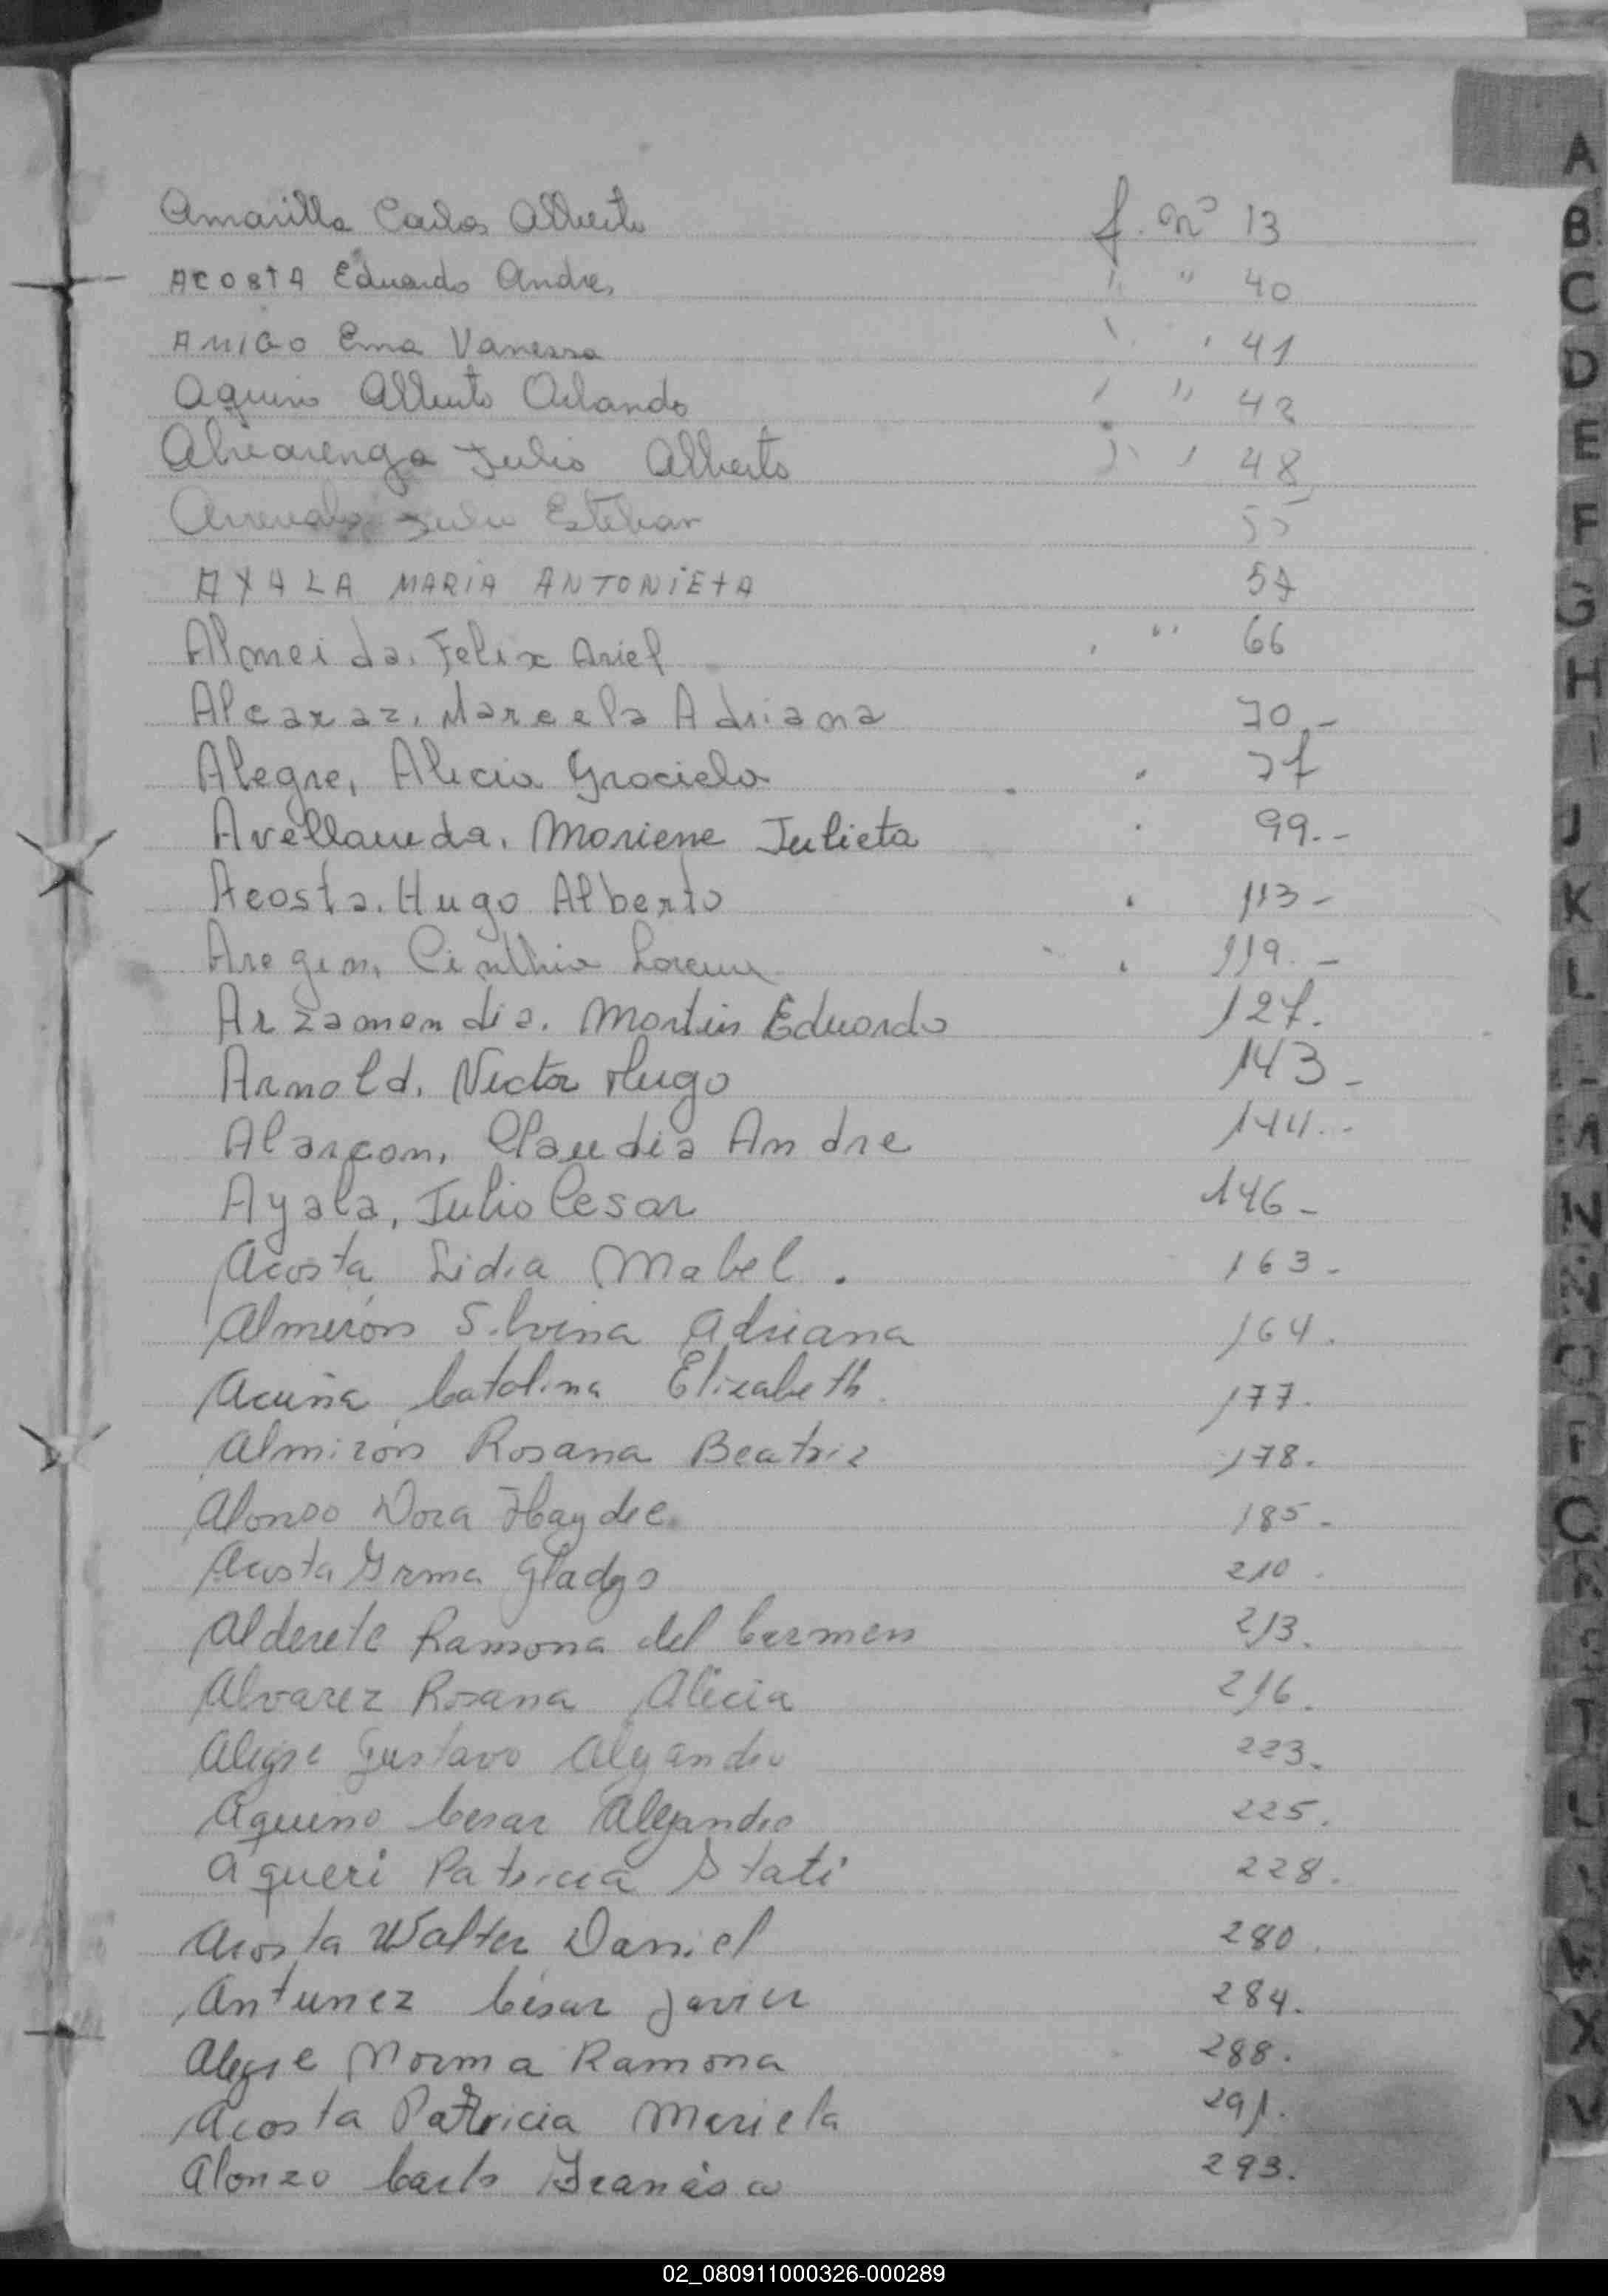 Amarilla Carlos Alberto f. Nº 13
ACOSTA Eduardo Andres " " 40
AMIGO Ema Vanessa " " 41
Aquino Alberto Orlando " " 42
Alvarenga Julio Alberto " " 48
Arrevalo Julio Esteban 55
AYALA MARIA ANTONIETA 57
Almeida, Felix Ariel " " 66
Alcaraz, Marcela Adriana 70.-
Alegre, Alicia Graciela 77
Avellaneda, Mariene Julieta 99.-
Acosta, Hugo Alberto 113-
Aregin, Cinthia Lorena 119.-
Arzamendia, Martin Eduardo 127.
Arnold, Victor Hugo 143-
Alarcon, Claudia Andre 144.-
Ayala, Julio Cesar 146-
Acosta Lidia Mabel. 163-
Almerón Silvina Adriana 164.
Acuña Catalina Elizabeth 177.
Almirón Rosana Beatriz 178.
Alonso Dora Haydee 185-
Acosta Yrma Gladys 210.
Alderete Ramona del Carmen 213.
Alvarez Rosana Alicia 216.
Alegre Gustavo Alejandro 223.
Aquino Cesar Alejandro 225.
Aqueri Patricia Stati 228.
Acosta Walter Daniel 280.
Antunez César Javier 284.
Alegre Norma Ramona 288.
Acosta Patricia Mariela 291.
Alonzo Carlos Francisco 293.
A
B
C
D
E
F
G
H
I
J
K
L
N
Q
T
U
X
02_080911000326-000289